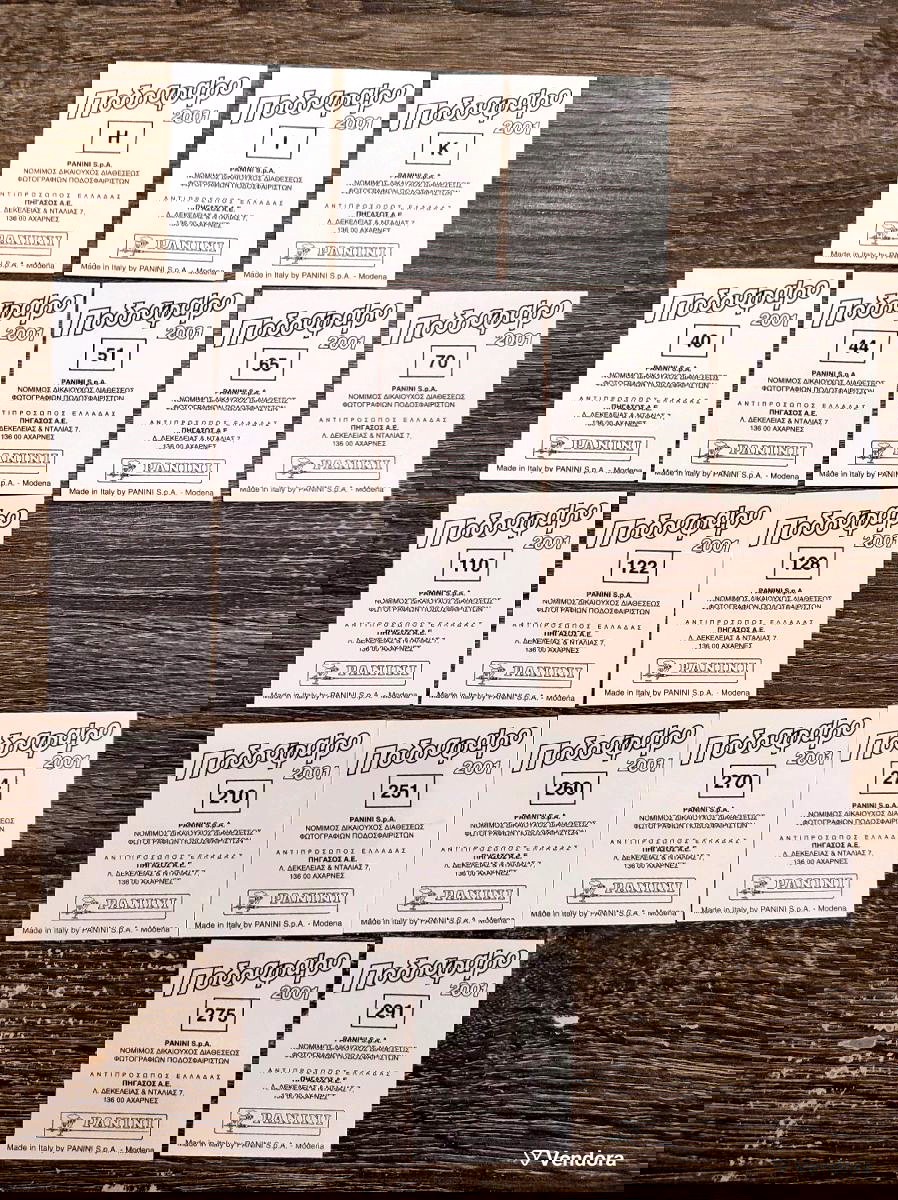 Ποδόσφαιρο
2001
H
PANINI S.p.A.
ΝΟΜΙΜΟΣ ΔΙΚΑΙΟΥΧΟΣ ΔΙΑΘΕΣΕΩΣ
ΦΩΤΟΓΡΑΦΙΩΝ ΠΟΔΟΣΦΑΙΡΙΣΤΩΝ
ΑΝΤΙΠΡΟΣΩΠΟΣ ΕΛΛΑΔΑΣ
ΠΗΓΑΣΟΣ Α.Ε.
Λ. ΔΕΚΕΛΕΙΑΣ & ΝΤΑΛΙΑΣ 7,
136 00 ΑΧΑΡΝΕΣ
PANINI
Ποδόσφαιρο
2001
I
PANINI S.p.A.
ΝΟΜΙΜΟΣ ΔΙΚΑΙΟΥΧΟΣ ΔΙΑΘΕΣΕΩΣ
ΦΩΤΟΓΡΑΦΙΩΝ ΠΟΔΟΣΦΑΙΡΙΣΤΩΝ
ΑΝΤΙΠΡΟΣΩΠΟΣ ΕΛΛΑΔΑΣ
ΠΗΓΑΣΟΣ Α.Ε.
Λ. ΔΕΚΕΛΕΙΑΣ & ΝΤΑΛΙΑΣ 7,
136 00 ΑΧΑΡΝΕΣ
PANINI
Made in Italy by PANINI S.p.A. - Modena
Ποδόσφαιρο
2001
K
PANINI S.p.A.
ΝΟΜΙΜΟΣ ΔΙΚΑΙΟΥΧΟΣ ΔΙΑΘΕΣΕΩΣ
ΦΩΤΟΓΡΑΦΙΩΝ ΠΟΔΟΣΦΑΙΡΙΣΤΩΝ
ΑΝΤΙΠΡΟΣΩΠΟΣ ΕΛΛΑΔΑΣ
ΠΗΓΑΣΟΣ Α.Ε.
Λ. ΔΕΚΕΛΕΙΑΣ & ΝΤΑΛΙΑΣ 7,
136 00 ΑΧΑΡΝΕΣ
PANINI
Made in Italy by PANINI S.p.A. - Modena
2001
PANINI
Ποδόσφαιρο
2001
51
PANINI S.p.A.
ΝΟΜΙΜΟΣ ΔΙΚΑΙΟΥΧΟΣ ΔΙΑΘΕΣΕΩΣ
ΦΩΤΟΓΡΑΦΙΩΝ ΠΟΔΟΣΦΑΙΡΙΣΤΩΝ
ΑΝΤΙΠΡΟΣΩΠΟΣ ΕΛΛΑΔΑΣ
ΠΗΓΑΣΟΣ Α.Ε.
Λ. ΔΕΚΕΛΕΙΑΣ & ΝΤΑΛΙΑΣ 7,
136 00 ΑΧΑΡΝΕΣ
PANINI
Made in Italy by PANINI S.p.A. - Modena
Ποδόσφαιρο
2001
65
PANINI S.p.A.
ΝΟΜΙΜΟΣ ΔΙΚΑΙΟΥΧΟΣ ΔΙΑΘΕΣΕΩΣ
ΦΩΤΟΓΡΑΦΙΩΝ ΠΟΔΟΣΦΑΙΡΙΣΤΩΝ
ΑΝΤΙΠΡΟΣΩΠΟΣ ΕΛΛΑΔΑΣ
ΠΗΓΑΣΟΣ Α.Ε.
Λ. ΔΕΚΕΛΕΙΑΣ & ΝΤΑΛΙΑΣ 7,
136 00 ΑΧΑΡΝΕΣ
PANINI
Made in Italy by PANINI S.p.A. - Modena
Ποδόσφαιρο
2001
70
PANINI S.p.A.
ΝΟΜΙΜΟΣ ΔΙΚΑΙΟΥΧΟΣ ΔΙΑΘΕΣΕΩΣ
ΦΩΤΟΓΡΑΦΙΩΝ ΠΟΔΟΣΦΑΙΡΙΣΤΩΝ
ΑΝΤΙΠΡΟΣΩΠΟΣ ΕΛΛΑΔΑΣ
ΠΗΓΑΣΟΣ Α.Ε.
Λ. ΔΕΚΕΛΕΙΑΣ & ΝΤΑΛΙΑΣ 7,
136 00 ΑΧΑΡΝΕΣ
PANINI
Made in Italy by PANINI S.p.A. - Modena
Ποδόσφαιρο
2001
40
PANINI S.p.A.
ΝΟΜΙΜΟΣ ΔΙΚΑΙΟΥΧΟΣ ΔΙΑΘΕΣΕΩΣ
ΦΩΤΟΓΡΑΦΙΩΝ ΠΟΔΟΣΦΑΙΡΙΣΤΩΝ
ΑΝΤΙΠΡΟΣΩΠΟΣ ΕΛΛΑΔΑΣ
ΠΗΓΑΣΟΣ Α.Ε.
Λ. ΔΕΚΕΛΕΙΑΣ & ΝΤΑΛΙΑΣ 7,
136 00 ΑΧΑΡΝΕΣ
PANINI
Made in Italy by PANINI S.p.A. - Modena
44
PANINI
Ποδόσφαιρο
2001
110
PANINI S.p.A.
ΝΟΜΙΜΟΣ ΔΙΚΑΙΟΥΧΟΣ ΔΙΑΘΕΣΕΩΣ
ΦΩΤΟΓΡΑΦΙΩΝ ΠΟΔΟΣΦΑΙΡΙΣΤΩΝ
ΑΝΤΙΠΡΟΣΩΠΟΣ ΕΛΛΑΔΑΣ
ΠΗΓΑΣΟΣ Α.Ε.
Λ. ΔΕΚΕΛΕΙΑΣ & ΝΤΑΛΙΑΣ 7,
136 00 ΑΧΑΡΝΕΣ
PANINI
Made in Italy by PANINI S.p.A. - Modena
Ποδόσφαιρο
2001
122
PANINI S.p.A.
ΝΟΜΙΜΟΣ ΔΙΚΑΙΟΥΧΟΣ ΔΙΑΘΕΣΕΩΣ
ΦΩΤΟΓΡΑΦΙΩΝ ΠΟΔΟΣΦΑΙΡΙΣΤΩΝ
ΑΝΤΙΠΡΟΣΩΠΟΣ ΕΛΛΑΔΑΣ
ΠΗΓΑΣΟΣ Α.Ε.
Λ. ΔΕΚΕΛΕΙΑΣ & ΝΤΑΛΙΑΣ 7,
136 00 ΑΧΑΡΝΕΣ
PANINI
Made in Italy by PANINI S.p.A. - Modena
Ποδόσφαιρο
2001
128
PANINI S.p.A.
ΝΟΜΙΜΟΣ ΔΙΚΑΙΟΥΧΟΣ ΔΙΑΘΕΣΕΩΣ
ΦΩΤΟΓΡΑΦΙΩΝ ΠΟΔΟΣΦΑΙΡΙΣΤΩΝ
ΑΝΤΙΠΡΟΣΩΠΟΣ ΕΛΛΑΔΑΣ
ΠΗΓΑΣΟΣ Α.Ε.
Λ. ΔΕΚΕΛΕΙΑΣ & ΝΤΑΛΙΑΣ 7,
136 00 ΑΧΑΡΝΕΣ
PANINI
Made in Italy by PANINI S.p.A. - Modena
2001
PANINI
Made in Italy by PANINI S.p.A. - Modena
Ποδόσφαιρο
2001
210
PANINI S.p.A.
ΝΟΜΙΜΟΣ ΔΙΚΑΙΟΥΧΟΣ ΔΙΑΘΕΣΕΩΣ
ΦΩΤΟΓΡΑΦΙΩΝ ΠΟΔΟΣΦΑΙΡΙΣΤΩΝ
ΑΝΤΙΠΡΟΣΩΠΟΣ ΕΛΛΑΔΑΣ
ΠΗΓΑΣΟΣ Α.Ε.
Λ. ΔΕΚΕΛΕΙΑΣ & ΝΤΑΛΙΑΣ 7,
136 00 ΑΧΑΡΝΕΣ
PANINI
Made in Italy by PANINI S.p.A. - Modena
Ποδόσφαιρο
2001
251
PANINI S.p.A.
ΝΟΜΙΜΟΣ ΔΙΚΑΙΟΥΧΟΣ ΔΙΑΘΕΣΕΩΣ
ΦΩΤΟΓΡΑΦΙΩΝ ΠΟΔΟΣΦΑΙΡΙΣΤΩΝ
ΑΝΤΙΠΡΟΣΩΠΟΣ ΕΛΛΑΔΑΣ
ΠΗΓΑΣΟΣ Α.Ε.
Λ. ΔΕΚΕΛΕΙΑΣ & ΝΤΑΛΙΑΣ 7,
136 00 ΑΧΑΡΝΕΣ
PANINI
Made in Italy by PANINI S.p.A. - Modena
Ποδόσφαιρο
2001
260
PANINI S.p.A.
ΝΟΜΙΜΟΣ ΔΙΚΑΙΟΥΧΟΣ ΔΙΑΘΕΣΕΩΣ
ΦΩΤΟΓΡΑΦΙΩΝ ΠΟΔΟΣΦΑΙΡΙΣΤΩΝ
ΑΝΤΙΠΡΟΣΩΠΟΣ ΕΛΛΑΔΑΣ
ΠΗΓΑΣΟΣ Α.Ε.
Λ. ΔΕΚΕΛΕΙΑΣ & ΝΤΑΛΙΑΣ 7,
136 00 ΑΧΑΡΝΕΣ
PANINI
Made in Italy by PANINI S.p.A. - Modena
Ποδόσφαιρο
2001
270
PANINI S.p.A.
ΝΟΜΙΜΟΣ ΔΙΚΑΙΟΥΧΟΣ ΔΙΑΘΕΣΕΩΣ
ΦΩΤΟΓΡΑΦΙΩΝ ΠΟΔΟΣΦΑΙΡΙΣΤΩΝ
ΑΝΤΙΠΡΟΣΩΠΟΣ ΕΛΛΑΔΑΣ
ΠΗΓΑΣΟΣ Α.Ε.
Λ. ΔΕΚΕΛΕΙΑΣ & ΝΤΑΛΙΑΣ 7,
136 00 ΑΧΑΡΝΕΣ
PANINI
Made in Italy by PANINI S.p.A. - Modena
Ποδόσφαιρο
2001
275
PANINI S.p.A.
ΝΟΜΙΜΟΣ ΔΙΚΑΙΟΥΧΟΣ ΔΙΑΘΕΣΕΩΣ
ΦΩΤΟΓΡΑΦΙΩΝ ΠΟΔΟΣΦΑΙΡΙΣΤΩΝ
ΑΝΤΙΠΡΟΣΩΠΟΣ ΕΛΛΑΔΑΣ
ΠΗΓΑΣΟΣ Α.Ε.
Λ. ΔΕΚΕΛΕΙΑΣ & ΝΤΑΛΙΑΣ 7,
136 00 ΑΧΑΡΝΕΣ
PANINI
Made in Italy by PANINI S.p.A. - Modena
Ποδόσφαιρο
2001
291
PANINI S.p.A.
ΝΟΜΙΜΟΣ ΔΙΚΑΙΟΥΧΟΣ ΔΙΑΘΕΣΕΩΣ
ΦΩΤΟΓΡΑΦΙΩΝ ΠΟΔΟΣΦΑΙΡΙΣΤΩΝ
ΑΝΤΙΠΡΟΣΩΠΟΣ ΕΛΛΑΔΑΣ
ΠΗΓΑΣΟΣ Α.Ε.
Λ. ΔΕΚΕΛΕΙΑΣ & ΝΤΑΛΙΑΣ 7,
136 00 ΑΧΑΡΝΕΣ
PANINI
Made in Italy by PANINI S.p.A. - Modena
Vendora